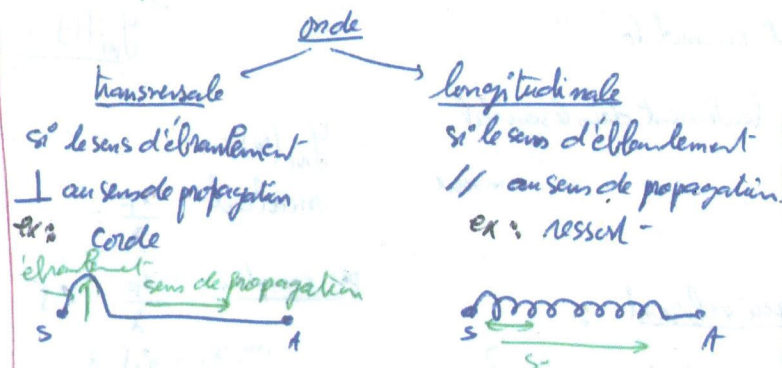 onde
transversale
si le sens d'ébranlement
⊥ au sens de propagation
ex: corde
ébranlement
sens de propagation
S A
longitudinale
si le sens d'ébranlement
// au sens de propagation.
ex: ressort
S A
S